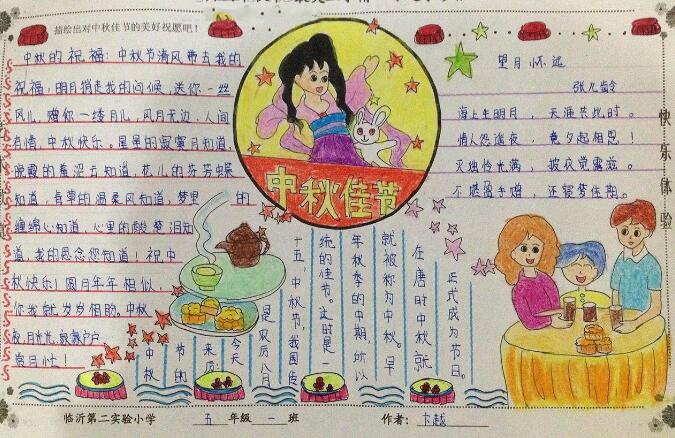 描绘出对中秋佳节的美好祝愿吧！
中秋的祝福：中秋节清风带去我的
祝福，明月捎走我的问候，送你一丝
风儿，赠你一缕月儿，风月无边，人间
有情，中秋快乐。星星的寂寞月知道，
晚霞的羞涩云知道，花儿的芬芳蝶
知道，青草的温柔风知道，梦里的
缠绵心知道，心里的酸楚泪知
道，我的思念您知道，祝中
秋快乐！圆月年年相似，
你我就岁岁相盼。中秋
夜，月光光，家家户户
中秋佳节
望月怀远
张九龄
海上生明月，天涯共此时。
情人怨遥夜，竟夕起相思！
灭烛怜光满，披衣觉露滋。
不堪盈手赠，还寝梦佳期。
快乐体验
正式成为节日。
在唐时中秋就
就被称为中秋。早
年秋季的中期，所以
统的佳节。这时是一
十五，中秋节，我国传
是农历八月
来历：今天
节的
中秋
临沂第二实验小学 五年级一班 作者：卞越